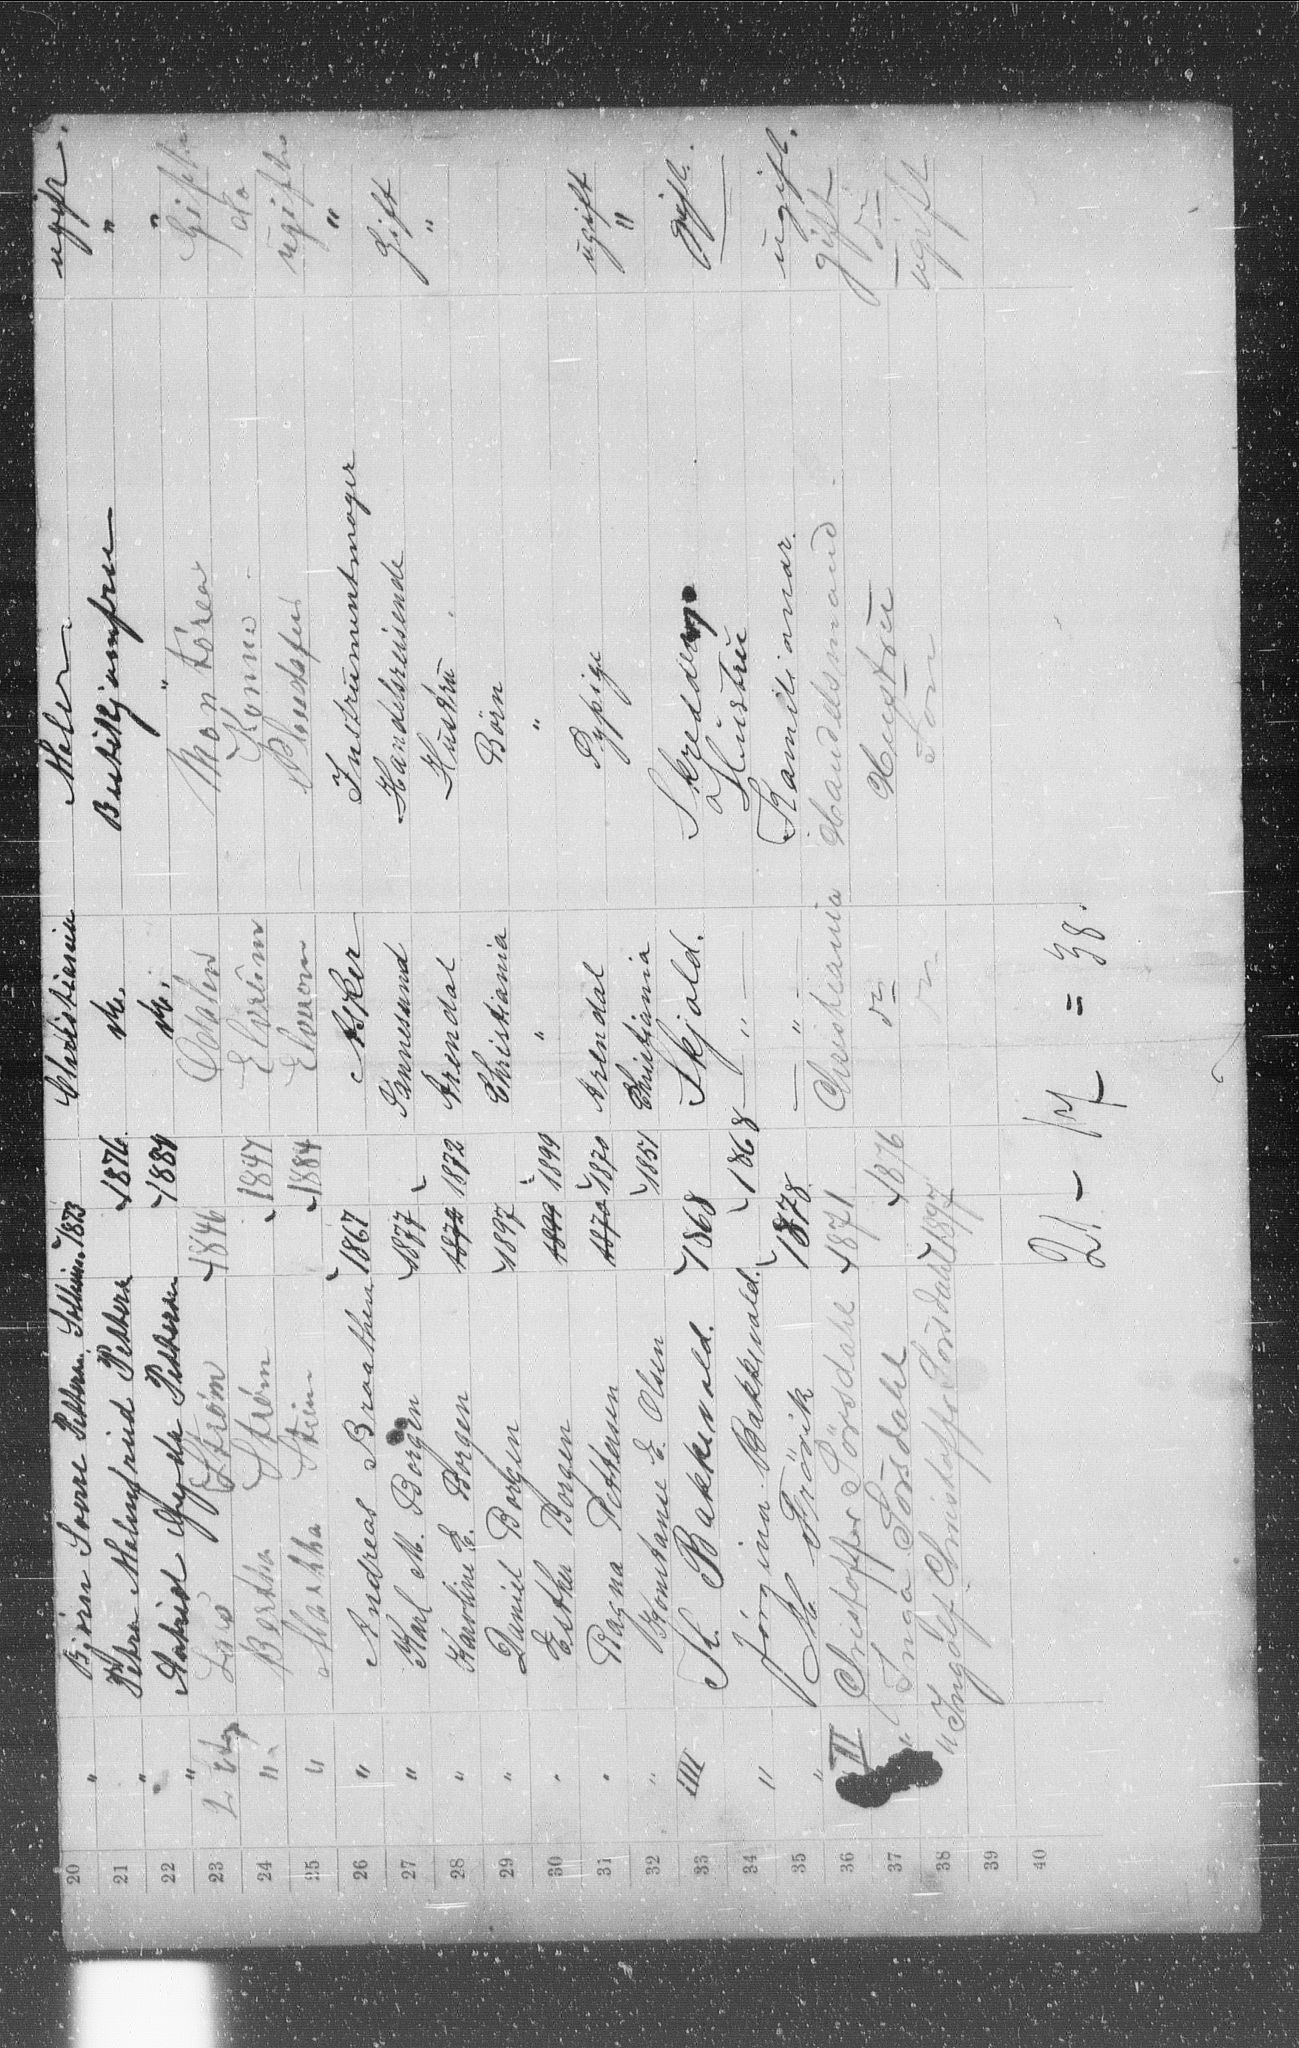 20 " Bjørn Sverre Pettersen Solheim 1873 Christiania Maler ugift.
21 " Petra Helmfrid Petters 1876 do. Butikjomfru "
22 " Astrid Gyda Pettersen 188 do. " "
23 2 etg Strøm 1846 Montör Gift
24 " Bertha Strøm 1847 Elverum Kone do
25 " Martha Strøm 1884 Elverum ugift
26 " Andreas Braathen 1867 Asker Instrumentmager "
27 " Karl M. Borgen 1877 Sannesund Handelsreisende Gift
28 " Karoline E. Borgen 1872 1872 Arendal Hustru "
29 " Daniel Borgen 1897 Christiania Børn
30 " Esther Borgen 1899 1899 " "
31 " Ragna Pettersen 1870 1870 Arendal Pypige ugift
32 " Konstanse E. Olsen 1851 Christiania "
33 III K. Bakkevold. 1868 Skjold. Skredder gift.
34 " Jørgina Bakkevold. 1868 — " — Hustru
35 " M. Frövik 1878 — " — Kamilianar. ugift.
36 IV Christoffer Sörsdahl 1871 Christiania Handelsmand. gift
37 " Inga Sörsdahl 1876 do Hustru do
38 " Ingolf Christoffer Sörsdahl 1897 do Sön ugift
39
40
21 – 17 = 38.